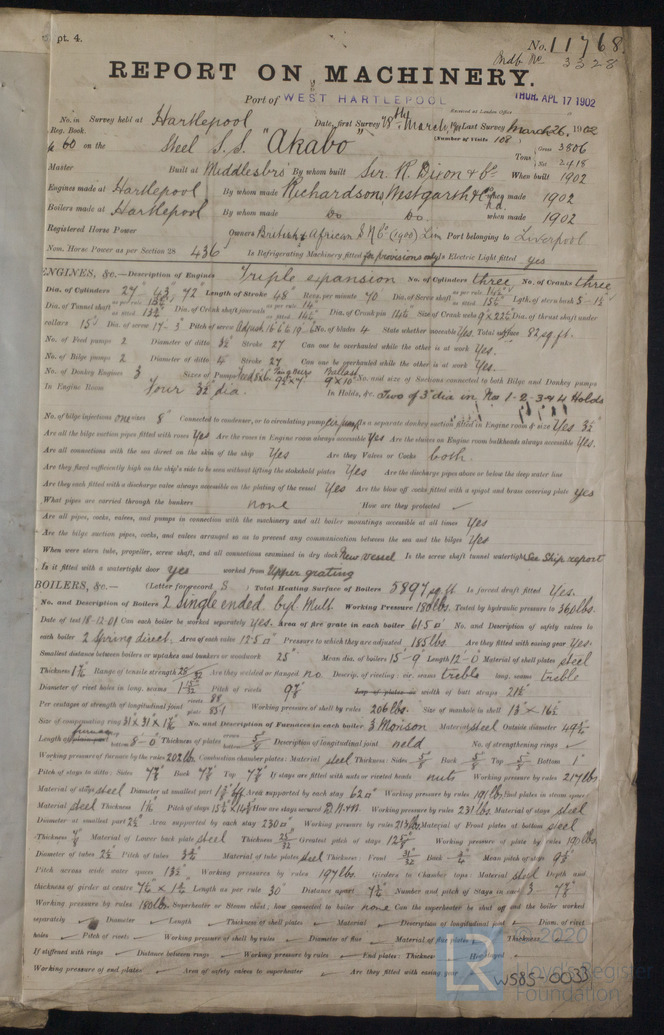 pt. 4.
No. 11768.
3328
REPORT ON MACHINERY.
Port of WEST HARTLEPOOL
Received at London Office
THUR. APL 17 1902
No. in Survey held at Hartlepool Date, first Survey March, Last Survey March 26, 1902
Reg. Book. (Number of Visits 108)
60 on the Steel S.S. "Akabo" Tons Gross 3806 Net 2418
Master Built at Middlesbro' By whom built Sir R. Dixon & Co. When built 1902
Engines made at Hartlepool By whom made Richardsons Westgarth & Co Ld. when made 1902
Boilers made at Hartlepool By whom made Do Do when made 1902
Registered Horse Power Owners British & African S N Co (1900) Lim Port belonging to Liverpool
Nom. Horse Power as per Section 28 436 Is Refrigerating Machinery fitted for provisions only Is Electric Light fitted yes
ENGINES, &c.—Description of Engines Triple expansion No. of Cylinders three No. of Cranks three
Dia. of Cylinders 27" 43" 72" Length of Stroke 48" Revs. per minute 70 Dia. of Screw shaft Lgth. of stern bush 5-15"
Dia. of Tunnel shaft Dia. of Crank shaft journals Dia. of Crank pin 14¾" Size of Crank webs 9 x 22½ Dia. of thrust shaft under
collars 15" Dia. of screw 17-3" Pitch of screw No. of blades 4 State whether moveable Yes. Total surface 82 sq. ft.
No. of Feed pumps 2 Diameter of ditto 3½" Stroke 27 Can one be overhauled while the other is at work Yes.
No. of Bilge pumps 2 Diameter of ditto 4" Stroke 27 Can one be overhauled while the other is at work Yes.
No. of Donkey Engines 3 Sizes of Pumps No. and size of Suctions connected to both Bilge and Donkey pumps
In Engine Room Four 3½ dia. In Holds, &c. Two of 3" dia in Nos 1-2-3 & 4 Holds
No. of bilge injections one sizes 8" Connected to condenser, or to circulating pump Is a separate donkey suction fitted in Engine room & size Yes 3½
Are all the bilge suction pipes fitted with roses Yes Are the roses in Engine room always accessible Yes Are the sluices on Engine room bulkheads always accessible Yes.
Are all connections with the sea direct on the skin of the ship Yes Are they Valves or Cocks both.
Are they fixed sufficiently high on the ship's side to be seen without lifting the stokehold plates Yes Are the discharge pipes above or below the deep water line
Are they each fitted with a discharge valve always accessible on the plating of the vessel Yes Are the blow off cocks fitted with a spigot and brass covering plate yes
What pipes are carried through the bunkers none How are they protected
Are all pipes, cocks, valves, and pumps in connection with the machinery and all boiler mountings accessible at all times Yes
Are the bilge suction pipes, cocks, and valves arranged so as to prevent any communication between the sea and the bilges Yes
When were stern tube, propeller, screw shaft, and all connections examined in dry dock New vessel Is the screw shaft tunnel watertight See Ship report
Is it fitted with a watertight door yes worked from Upper grating
BOILERS, &c.— (Letter for record S) Total Heating Surface of Boilers 5897 sq. ft Is forced draft fitted Yes.
No. and Description of Boilers 2 Single ended, Cyl. Mult Working Pressure 180 lbs. Tested by hydraulic pressure to 360 lbs.
Date of test 18-12-01 Can each boiler be worked separately yes. Area of fire grate in each boiler 61.5 No. and Description of safety valves to
each boiler 2 Spring direct. Area of each valve 12.5 Pressure to which they are adjusted 185 lbs. Are they fitted with easing gear Yes.
Smallest distance between boilers or uptakes and bunkers or woodwork 25" Mean dia. of boilers 15-9 Length 12'-0 Material of shell plates steel
Thickness Range of tensile strength 28/32 Are they welded or flanged no Descrip. of riveting: cir. seams treble long. seams treble
Diameter of rivet holes in long. seams Pitch of rivets 9⅞ Lap of plates or width of butt straps 21⅛"
Per centages of strength of longitudinal joint rivets 88 plate 85.1 Working pressure of shell by rules 206 lbs. Size of manhole in shell 13" x 16½
Size of compensating ring 31 x 31 x 1⅜ No. and Description of Furnaces in each boiler 3 Morison Material steel Outside diameter 49¾
Length of furnace 8-0 Thickness of plates 5/8 Description of longitudinal joint weld No. of strengthening rings
Working pressure of furnace by the rules 202 lbs Combustion chamber plates: Material steel Thickness: Sides 5/8 Back 5/8 Top 5/8 Bottom 1
Pitch of stays to ditto: Sides 7⅞ Back 7⅞ Top 7⅞ If stays are fitted with nuts or riveted heads nuts Working pressure by rules 217 lbs
Material of stays steel Diameter at smallest part Area supported by each stay 62 Working pressure by rules 191 lbs End plates in steam space:
Material steel Thickness 1⅛ Pitch of stays How are stays secured D.N.&W. Working pressure by rules 231 lbs. Material of stays steel
Diameter at smallest part 2¾" Area supported by each stay 230 Working pressure by rules 213 lbs Material of Front plates at bottom steel
Thickness 7/8 Material of Lower back plate steel Thickness 25/32 Greatest pitch of stays Working pressure of plate by rules 190 lbs.
Diameter of tubes 2½ Pitch of tubes 3¾ Material of tube plates steel Thickness: Front 31/32 Back ¾ Mean pitch of stays 9½
Pitch across wide water spaces 13½ Working pressures by rules 197 lbs. Girders to Chamber tops: Material steel Depth and
thickness of girder at centre 7¾ x 1¾ Length as per rule 30" Distance apart 7½ Number and pitch of Stays in each 3 - 7⅞"
Working pressure by rules 180 lbs Superheater or Steam chest; how connected to boiler none Can the superheater be shut off and the boiler worked
separately Diameter Length Thickness of shell plates Material Description of longitudinal joint Diam. of rivet
holes Pitch of rivets Working pressure of shell by rules Diameter of flue Material of flue plates Thickness
If stiffened with rings Distance between rings Working pressure by rules End plates: Thickness How stayed
Working pressure of end plates Area of safety valves to superheater Are they fitted with easing gear
© 2020
LR
Lloyd's Register
Foundation
W585-0033